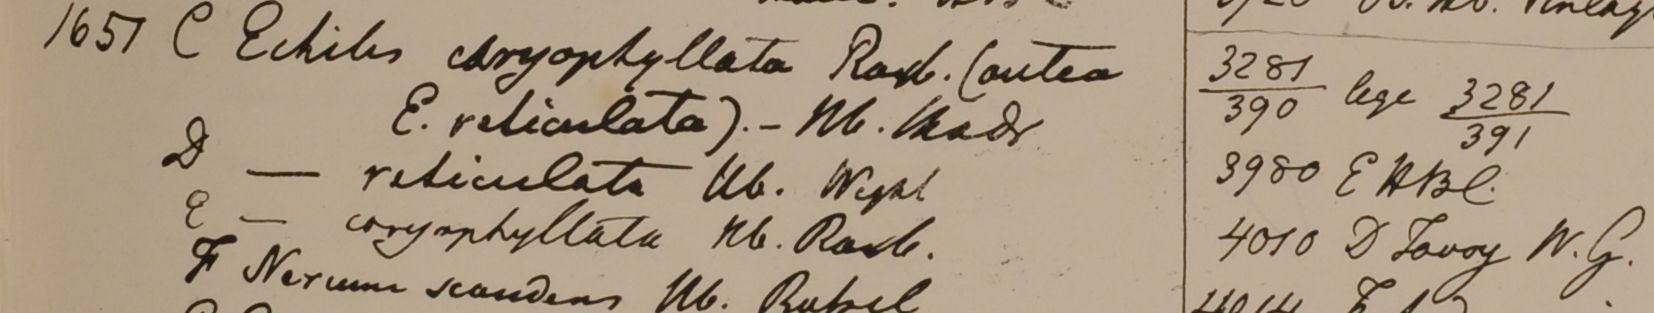 1657 C Echites caryophyllata Roxb. (antea
E. reticulata). - Hb. Madr
D — reticulata Hb. Wight
E — caryophyllata Hb. Roxb.
F Nerium scandens Hb.
3281/390 lege 3281/391
3980 E HBC.
4010 D Tavoy W.G.